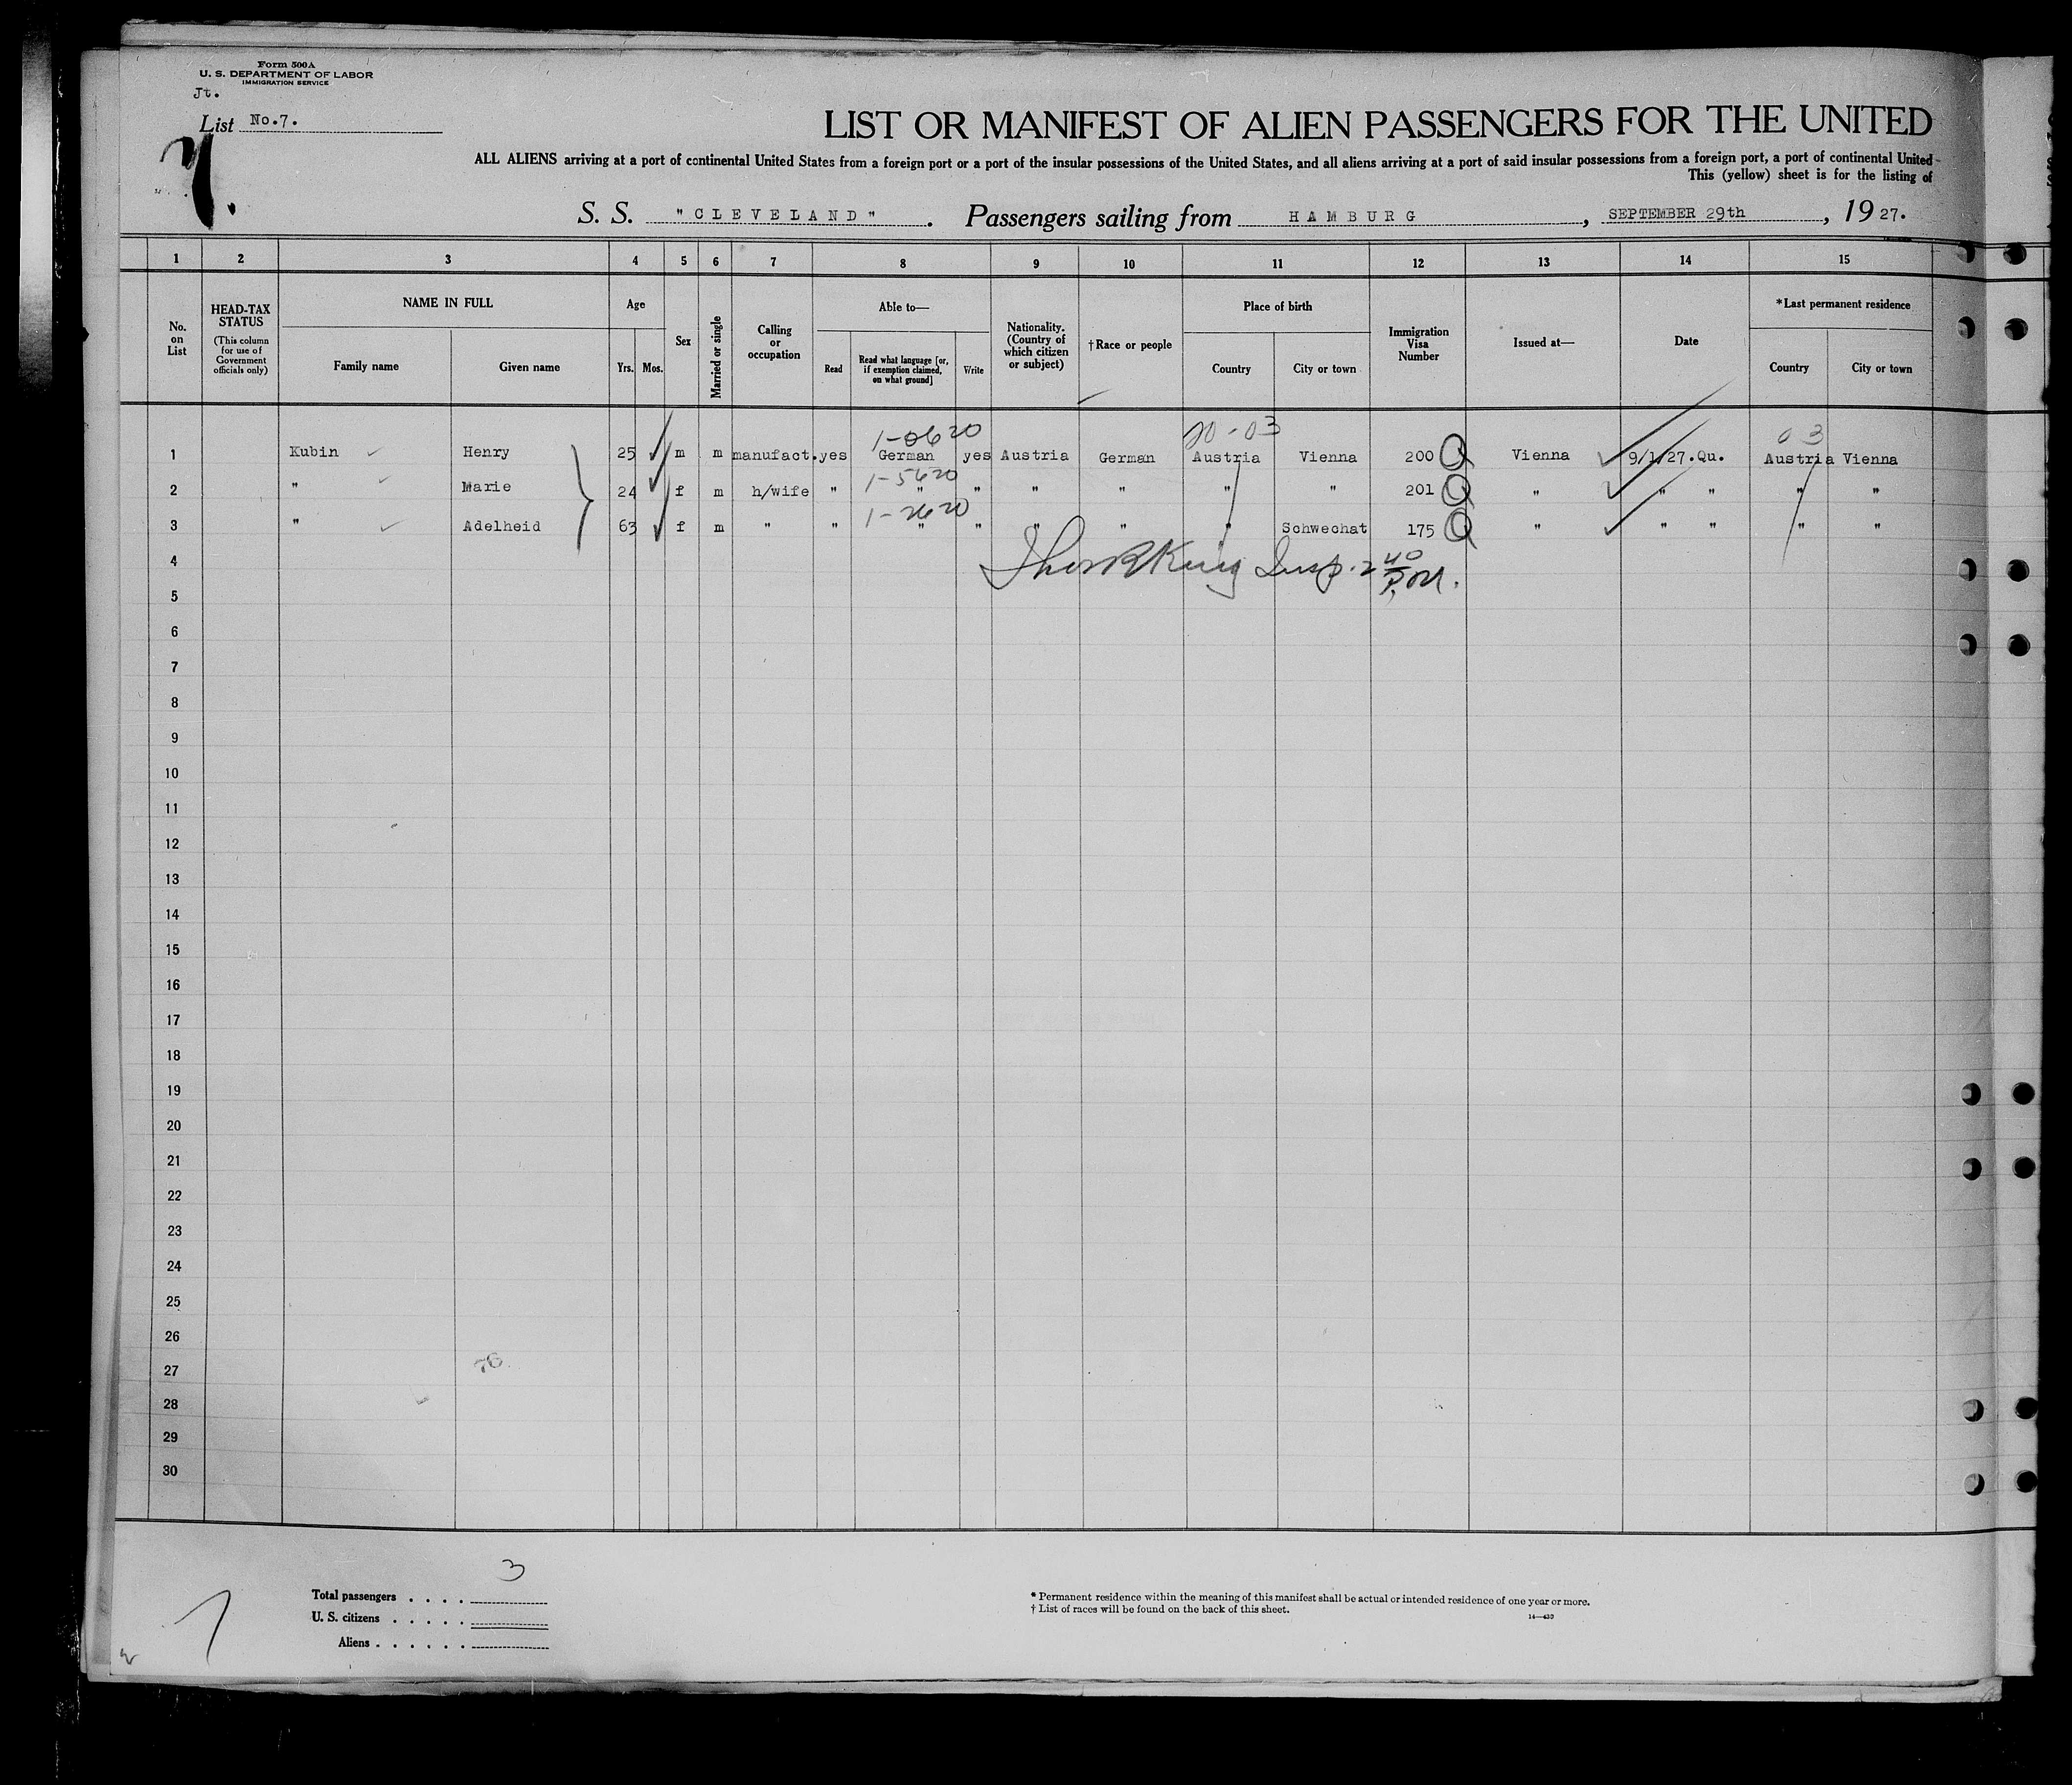 Form 500 A
U. S. DEPARTMENT OF LABOR
IMMIGRATION SERVICE
Jt.
List No.7.
7.
LIST OR MANIFEST OF ALIEN PASSENGERS FOR THE UNITED
ALL ALIENS arriving at a port of continental United States from a foreign port or a port of the insular possessions of the United States, and all aliens arriving at a port of said insular possessions from a foreign port, a port of continental United
This (yellow) sheet is for the listing of
S. S. "CLEVELAND". Passengers sailing from HAMBURG, SEPTEMBER 29th, 1927.
1 2 3 4 5 6 7 8 9 10 11 12 13 14 15
No. on List
HEAD-TAX STATUS (This column for use of Government officials only)
NAME IN FULL
Family name Given name
Age
Yrs. Mos.
Sex
Married or single
Calling or occupation
Able to—
Read
Read what language [or, if exemption claimed, on what ground]
Write
Nationality. (Country of which citizen or subject)
†Race or people
Place of birth
Country City or town
Immigration Visa Number
Issued at—
Date
*Last permanent residence
Country City or town
1-0620 20-03 03
1 Kubin Henry 25 m m manufact. yes German yes Austria German Austria Vienna 200 Q Vienna 9/1/27.Qu. Austria Vienna
1-5620
2 " Marie 24 f m h/wife " " " " " " " 201 Q " " " " "
1-2620
3 " Adelheid 63 f m " " " " " " " Schwechat 175 Q " " " " "
4 King Insp. 2 40 P.M.
5
6
7
8
9
10
11
12
13
14
15
16
17
18
19
20
21
22
23
24
25
26
27 76
28
29
30
3
Total passengers . . . .
U. S. citizens . . . . .
Aliens . . . . . .
7
* Permanent residence within the meaning of this manifest shall be actual or intended residence of one year or more.
† List of races will be found on the back of this sheet.
14—430